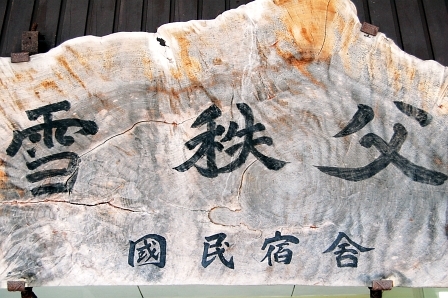 雪秩父
國民宿舎